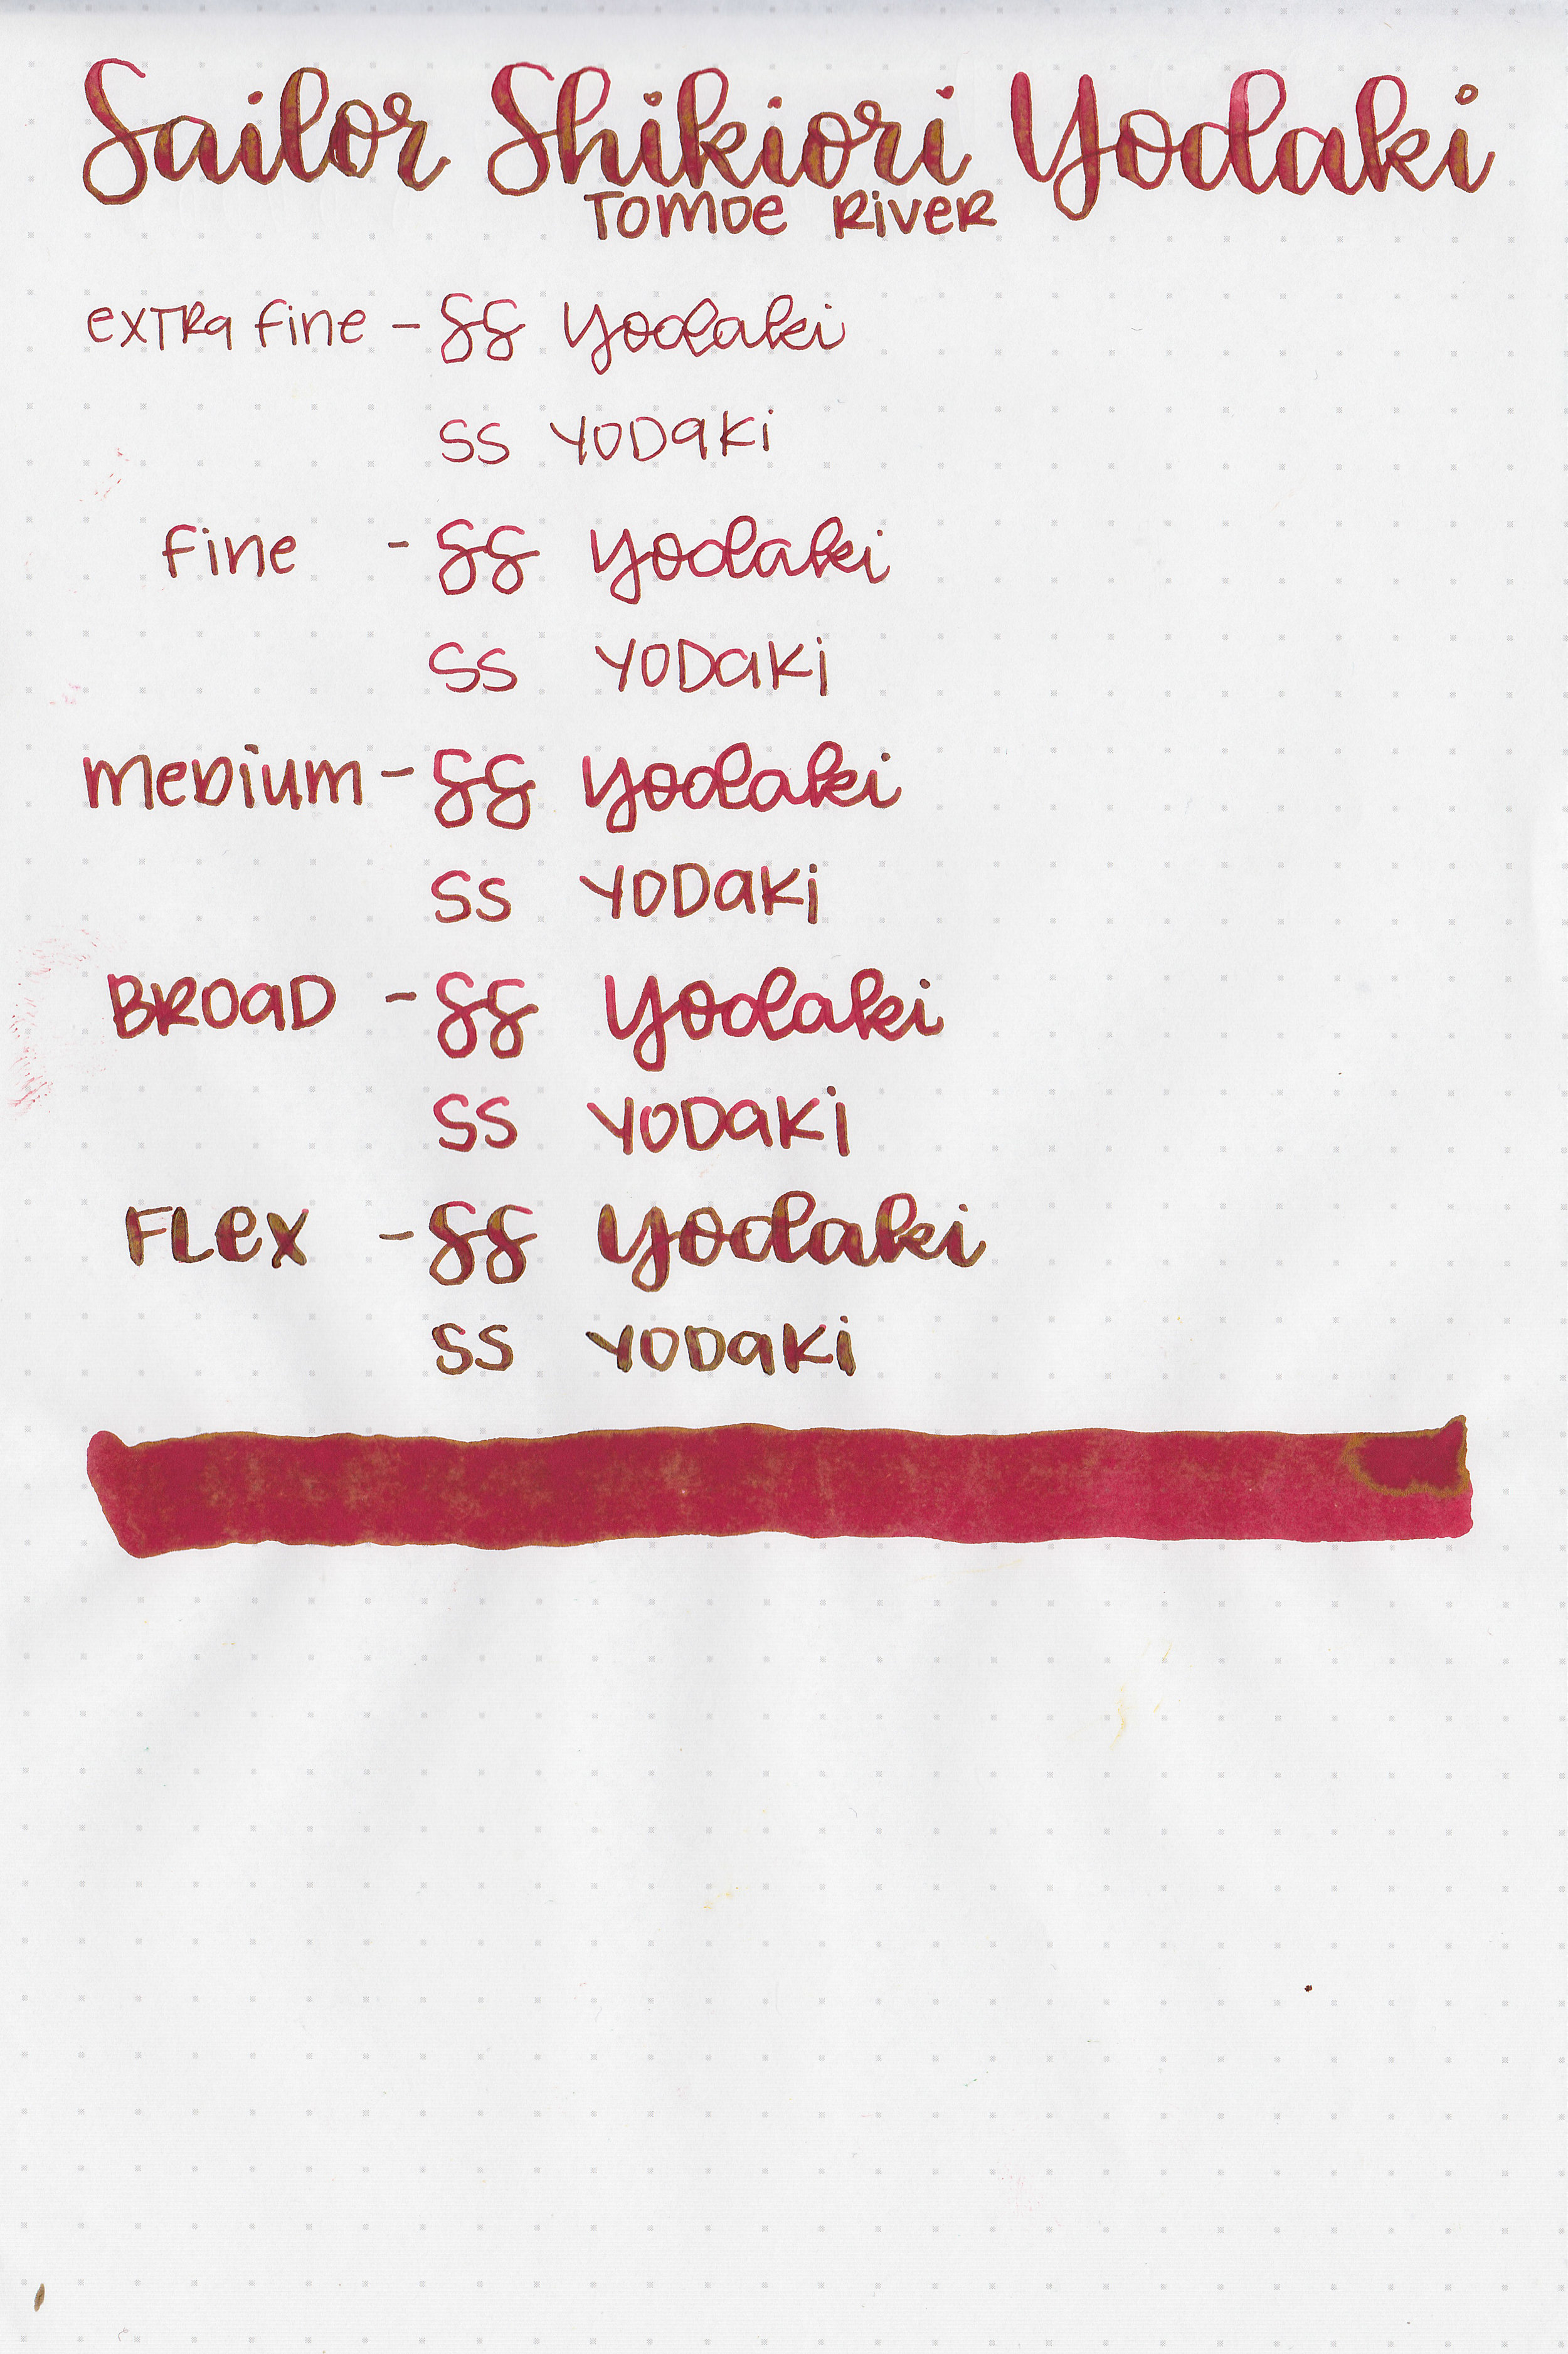 Sailor Shikiori Yodaki
TOMOE RIVER
extra fine - SS Yodaki
SS YODaKi
fine - SS Yodaki
SS YODaKi
meDium - SS Yodaki
SS YODaKi
BROaD - SS Yodaki
SS YODaKi
FLex - SS Yodaki
SS YODaKi